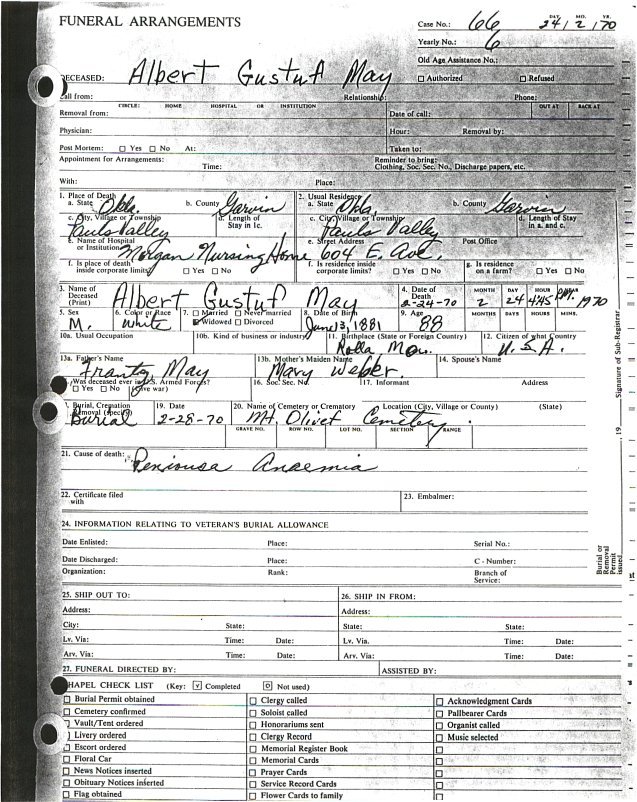 FUNERAL ARRANGEMENTS
Case No.: 66 DAY 24 / MO. 2 / YR. 70
Yearly No.: 6
Old Age Assistance No.:
DECEASED: Albert Gustuf May
☐ Authorized ☐ Refused
Call from: Relationship: Phone:
CIRCLE: HOME HOSPITAL OR INSTITUTION OUT AT BACK AT
Removal from: Date of call:
Physician: Hour: Removal by:
Post Mortem: ☐ Yes ☐ No At: Taken to:
Appointment for Arrangements: Reminder to bring:
Time: Clothing, Soc. Sec. No., Discharge papers, etc.
With: Place:
1. Place of Death 2. Usual Residence
a. State Okla. b. County Garvin a. State Okla b. County Garvin
c. City, Village or Township d. Length of Stay in 1c. c. City, Village or Township d. Length of Stay in a. and c.
Pauls Valley Pauls Valley
e. Name of Hospital or Institution Morgan Nursing Home e. Street Address 604 E. Ave. Post Office
f. Is place of death inside corporate limits? ☐ Yes ☐ No f. Is residence inside corporate limits? ☐ Yes ☐ No g. Is residence on a farm? ☐ Yes ☐ No
3. Name of Deceased (Print) Albert Gustuf May 4. Date of Death 2-24-70 MONTH 2 DAY 24 HOUR 4:45 P.M. YEAR 1970
5. Sex M. 6. Color or Race White 7. ☐ Married ☐ Never married ☒ Widowed ☐ Divorced 8. Date of Birth June 13, 1881 9. Age 88 MONTHS DAYS HOURS MINS.
10a. Usual Occupation 10b. Kind of business or industry 11. Birthplace (State or Foreign Country) Rolla Mo. 12. Citizen of what Country U.S.A.
13a. Father's Name Frantz May 13b. Mother's Maiden Name Mary Weber. 14. Spouse's Name
Was deceased ever in U.S. Armed Forces? 16. Soc. Sec. No. 17. Informant Address
☐ Yes ☐ No (give war)
Burial, Cremation Removal (specify) Burial 19. Date 2-28-70 20. Name of Cemetery or Crematory Mt. Olivet Cemetery Location (City, Village or County) (State)
GRAVE NO. ROW NO. LOT NO. SECTION RANGE
21. Cause of death: Peniousa Anaemia
22. Certificate filed with 23. Embalmer:
24. INFORMATION RELATING TO VETERAN'S BURIAL ALLOWANCE
Date Enlisted: Place: Serial No.:
Date Discharged: Place: C - Number:
Organization: Rank: Branch of Service:
Burial or Removal Permit issued 19 Signature of Sub-Registrar
25. SHIP OUT TO: 26. SHIP IN FROM:
Address: Address:
City: State: State: State:
Lv. Via: Time: Date: Lv. Via: Time: Date:
Arv. Via: Time: Date: Arv. Via: Time: Date:
27. FUNERAL DIRECTED BY: ASSISTED BY:
CHAPEL CHECK LIST (Key: ☑ Completed ⊡ Not used)
☐ Burial Permit obtained ☐ Clergy called ☐ Acknowledgment Cards
☐ Cemetery confirmed ☐ Soloist called ☐ Pallbearer Cards
☐ Vault/Tent ordered ☐ Honorariums sent ☐ Organist called
☐ Livery ordered ☐ Clergy Record ☐ Music selected
☐ Escort ordered ☐ Memorial Register Book ☐
☐ Floral Car ☐ Memorial Cards ☐
☐ News Notices inserted ☐ Prayer Cards ☐
☐ Obituary Notices inserted ☐ Service Record Cards ☐
☐ Flag obtained ☐ Flower Cards to family ☐